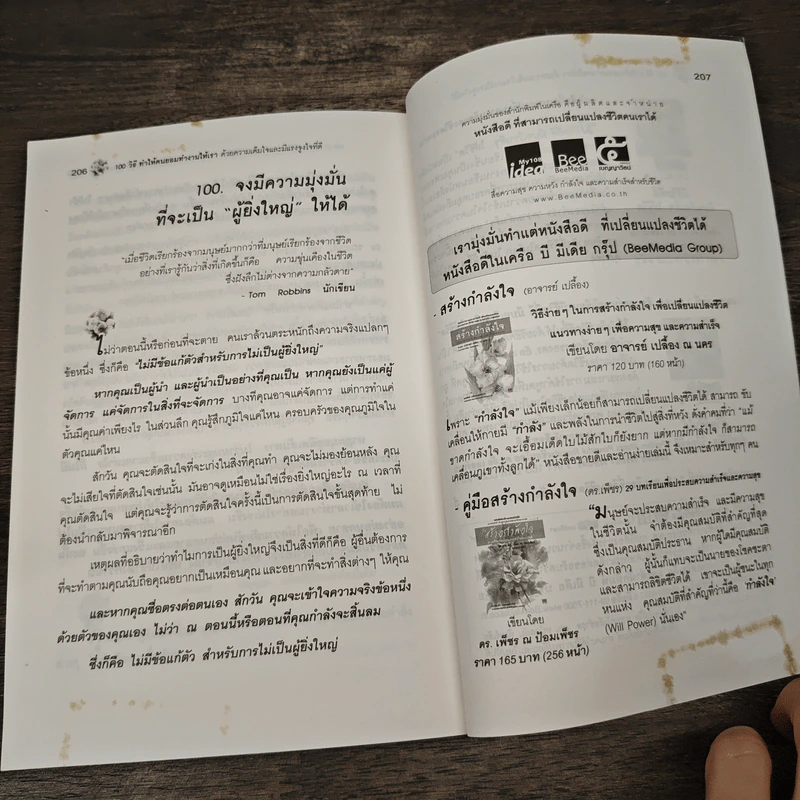 206
100 วิธี ทำให้คนยอมทำงานให้เรา ด้วยความเต็มใจและมีแรงจูงใจที่ดี
100. จงมีความมุ่งมั่น
ที่จะเป็น “ผู้ยิ่งใหญ่” ให้ได้
“เมื่อชีวิตเรียกร้องจากมนุษย์มากกว่าที่มนุษย์เรียกร้องจากชีวิต
อย่างที่เรารู้กันว่าสิ่งที่เกิดขึ้นก็คือ ความขุ่นเคืองในชีวิต
ซึ่งฝังลึกไม่ต่างจากความกลัวตาย”
- Tom Robbins นักเขียน
ไม่ว่าตอนนี้หรือก่อนที่จะตาย คนเราล้วนตระหนักถึงความจริงแปลกๆ
ข้อหนึ่ง ซึ่งก็คือ “ไม่มีข้อแก้ตัวสำหรับการไม่เป็นผู้ยิ่งใหญ่”
หากคุณเป็นผู้นำ และผู้นำเป็นอย่างที่คุณเป็น หากคุณยังเป็นแค่ผู้
จัดการ แค่จัดการในสิ่งที่จะจัดการ บางทีคุณอาจแค่จัดการ แต่การทำแค่
นั้นมีคุณค่าเพียงไร ในส่วนลึก คุณรู้สึกภูมิใจแค่ไหน ครอบครัวของคุณภูมิใจใน
ตัวคุณแค่ไหน
สักวัน คุณจะตัดสินใจที่จะเก่งในสิ่งที่คุณทำ คุณจะไม่มองย้อนหลัง คุณ
จะไม่เสียใจที่ตัดสินใจเช่นนั้น มันอาจดูเหมือนไม่ใช่เรื่องยิ่งใหญ่อะไร ณ เวลาที่
คุณตัดสินใจ แต่คุณจะรู้ว่าการตัดสินใจครั้งนี้เป็นการตัดสินใจขั้นสุดท้าย ไม่
ต้องนำกลับมาพิจารณาอีก
เหตุผลที่อธิบายว่าทำไมการเป็นผู้ยิ่งใหญ่จึงเป็นสิ่งที่ดีก็คือ ผู้อื่นต้องการ
ที่จะทำตามคุณนับถือคุณอยากเป็นเหมือนคุณ และอยากที่จะทำสิ่งต่างๆ ให้คุณ
และหากคุณซื่อตรงต่อตนเอง สักวัน คุณจะเข้าใจความจริงข้อหนึ่ง
ด้วยตัวของคุณเอง ไม่ว่า ณ ตอนนี้หรือตอนที่คุณกำลังจะสิ้นลม
ซึ่งก็คือ ไม่มีข้อแก้ตัว สำหรับการไม่เป็นผู้ยิ่งใหญ่
207
ความมุ่งมั่นของสำนักพิมพ์ในเครือ คือผู้ผลิตและจำหน่าย
หนังสือดี ที่สามารถเปลี่ยนแปลงชีวิตคนเราได้
My108 idea
Bee BeeMedia
เบญญาวิชญ์
สื่อความสุข ความหวัง กำลังใจ และความสำเร็จสำหรับชีวิต
www.BeeMedia.co.th
เรามุ่งมั่นทำแต่หนังสือดี ที่เปลี่ยนแปลงชีวิตได้
หนังสือดีในเครือ บี มีเดีย กรุ๊ป (BeeMedia Group)
- สร้างกำลังใจ (อาจารย์ เปลื้อง)
สร้างกำลังใจ
วิธีง่ายๆ ในการสร้างกำลังใจ เพื่อเปลี่ยนแปลงชีวิต
แนวทางง่ายๆ เพื่อความสุข และความสำเร็จ
เขียนโดย อาจารย์ เปลื้อง ณ นคร
ราคา 120 บาท (160 หน้า)
เพราะ “กำลังใจ” แม้เพียงเล็กน้อยก็สามารถเปลี่ยนแปลงชีวิตได้ สามารถ ขับ
เคลื่อนให้กายมี “กำลัง” และพลังในการนำชีวิตไปสู่สิ่งที่หวัง ดังคำคมที่ว่า “แม้
ขาดกำลังใจ จะเอื้อมเด็ดใบไม้สักใบก็ยังยาก แต่หากมีกำลังใจ ก็สามารถ
เคลื่อนภูเขาทั้งลูกได้” หนังสือขายดีและอ่านง่ายเล่มนี้ จึงเหมาะสำหรับทุกๆ คน
- คู่มือสร้างกำลังใจ (ดร.เพ็ชร) 29 บทเรียนเพื่อประสบความสำเร็จและความสุข
สร้างกำลังใจ
“มนุษย์จะประสบความสำเร็จ และมีความสุข
ในชีวิตนั้น จำต้องมีคุณสมบัติที่สำคัญที่สุด
ซึ่งเป็นคุณสมบัติประธาน หากผู้ใดมีคุณสมบัติ
ดังกล่าว ผู้นั้นก็แทบจะเป็นนายของโชคชะตา
และสามารถลิขิตชีวิตได้ เขาจะเป็นผู้ชนะในทุก
หนแห่ง คุณสมบัติที่สำคัญที่ว่านี้คือ ‘กำลังใจ’
(Will Power) นั่นเอง”
เขียนโดย
ดร. เพ็ชร ณ ป้อมเพ็ชร
ราคา 165 บาท (256 หน้า)